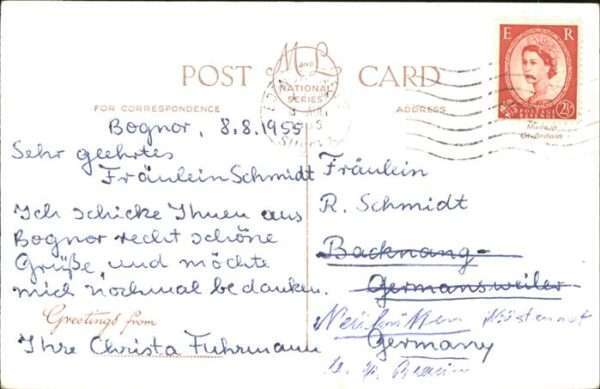 POST CARD
M and L
NATIONAL
SERIES
FOR CORRESPONDENCE
ADDRESS
E R
2½
Bognor, 8.8.1955
Sehr geehrtes
Fräulein Schmidt
Ich schicke Ihnen aus
Bognor recht schöne
Grüße, und möchte
mich nochmal bedanken.
Greetings from
Ihre Christa Fuhrmann
Fräulein
R. Schmidt
Backnang-
Germansweiler
Germany